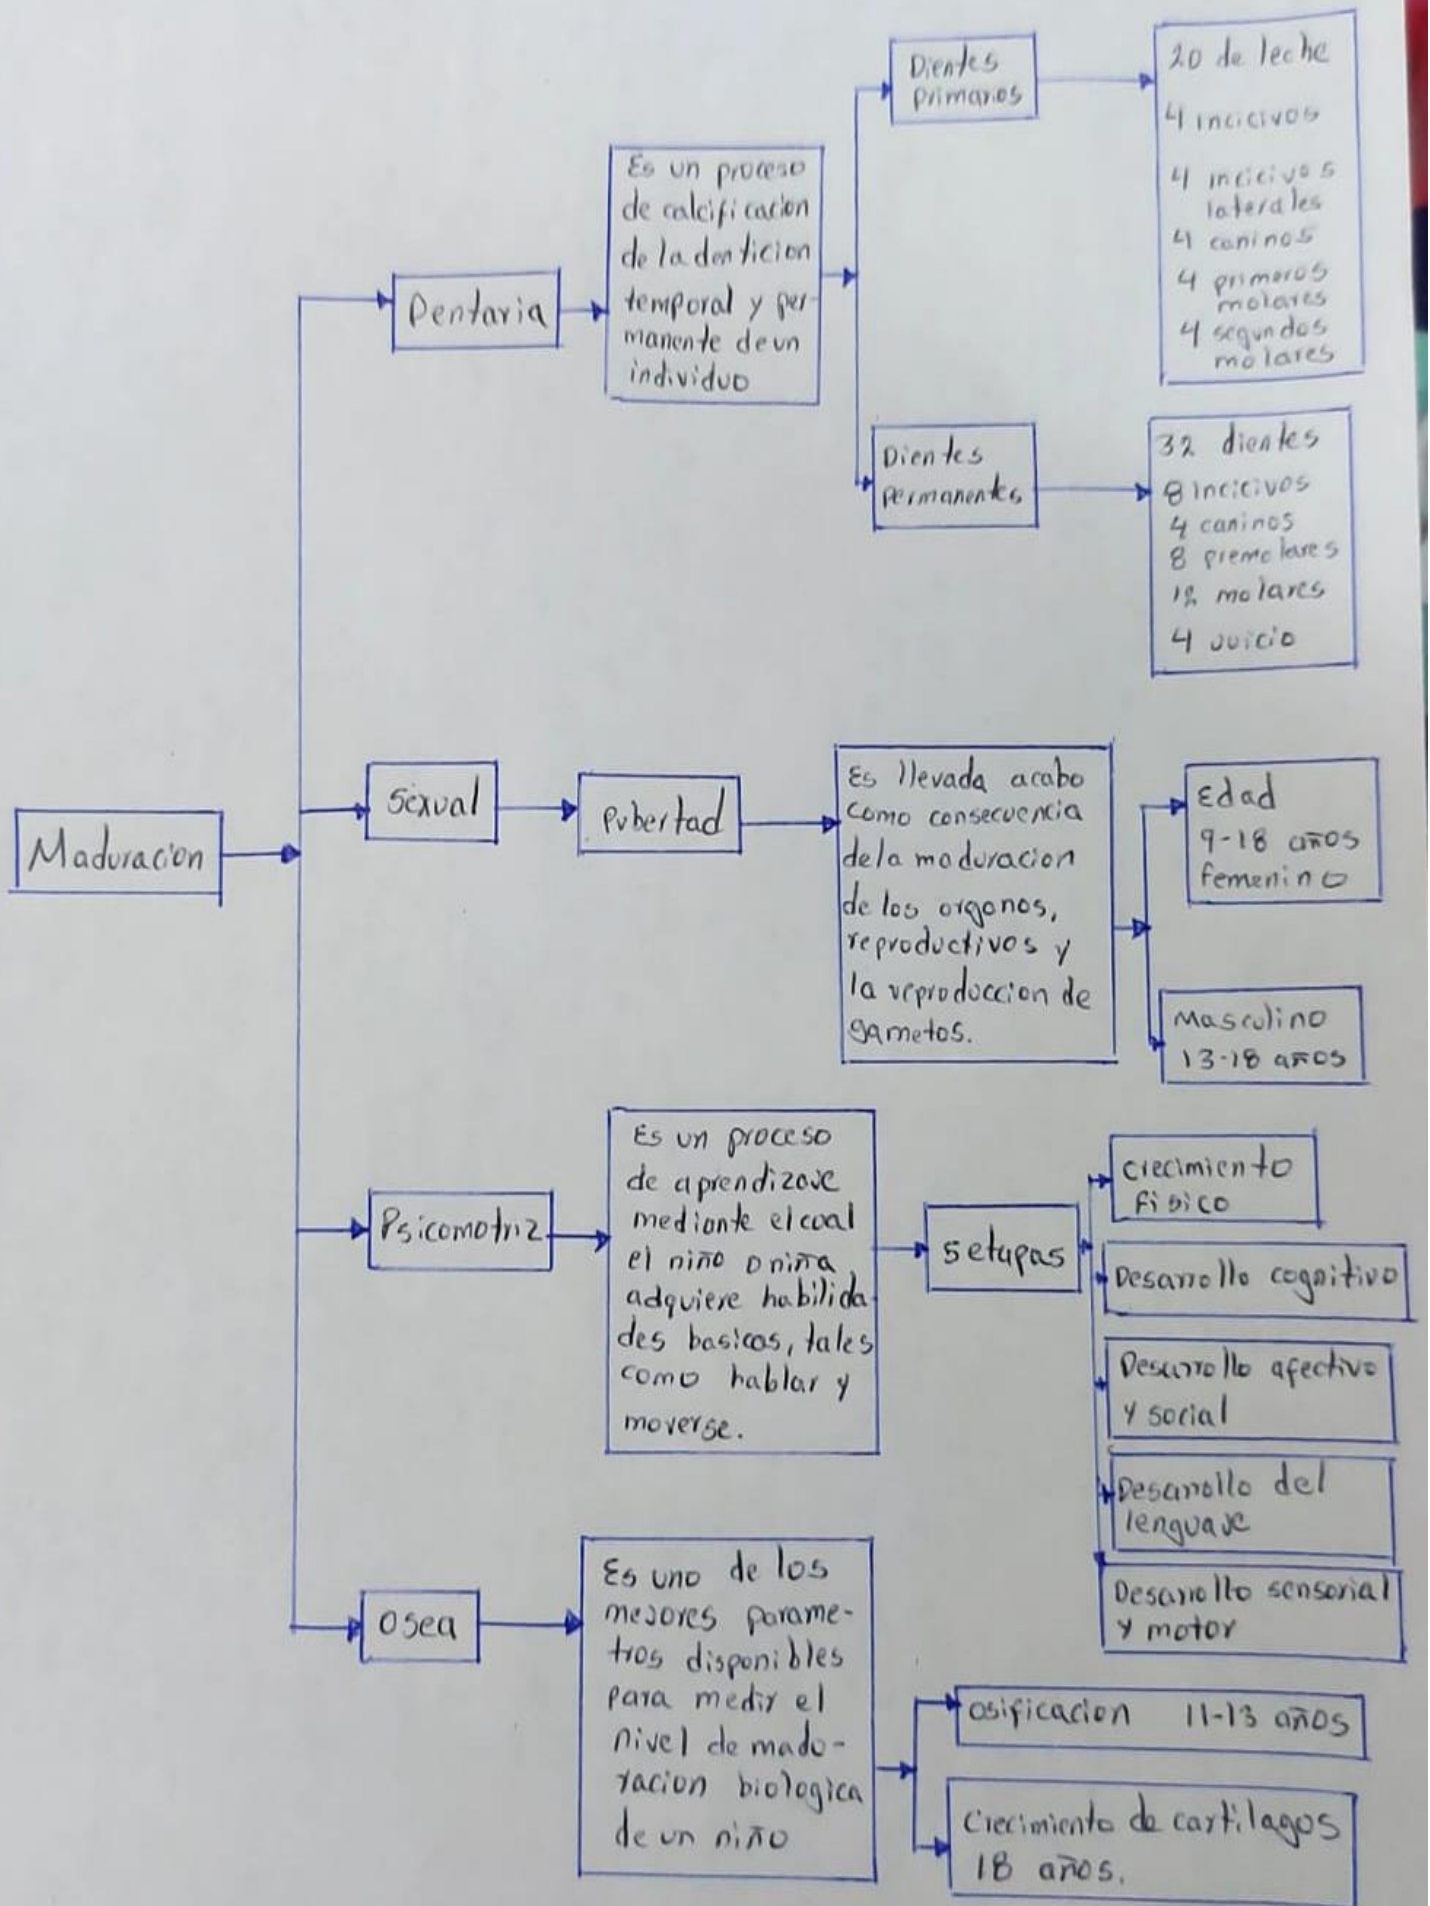 Maduracion
Dentaria
Es un proceso
de calcificacion
de la denticion
temporal y per-
manente de un
individuo
Dientes
primarios
20 de leche
4 incicivos
4 incicivos
laterales
4 caninos
4 primeros
molares
4 segundos
molares
Dientes
permanentes
32 dientes
8 incicivos
4 caninos
8 premolares
12 molares
4 juicio
Sexual
Pubertad
Es llevada acabo
como consecuencia
dela maduracion
de los organos,
reproductivos y
la reproduccion de
gametos.
Edad
9-18 años
femenino
Masculino
13-18 años
Psicomotriz
Es un proceso
de aprendizaje
mediante el cual
el niño o niña
adquiere habilida
des basicas, tales
como hablar y
moverse.
5 etapas
crecimiento
fisico
Desarrollo cognitivo
Desarrollo afectivo
y social
Desarrollo del
lenguaje
Desarrollo sensorial
y motor
Osea
Es uno de los
mejores parame-
tros disponibles
para medir el
nivel de madu-
racion biologica
de un niño
osificacion 11-13 años
Crecimiento de cartilagos
18 años.